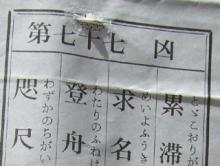 第七十七 凶
とゞこおりが
累滞
めいよふうき
求名
わたりのふねは
登舟
わずかのちがい
咫尺